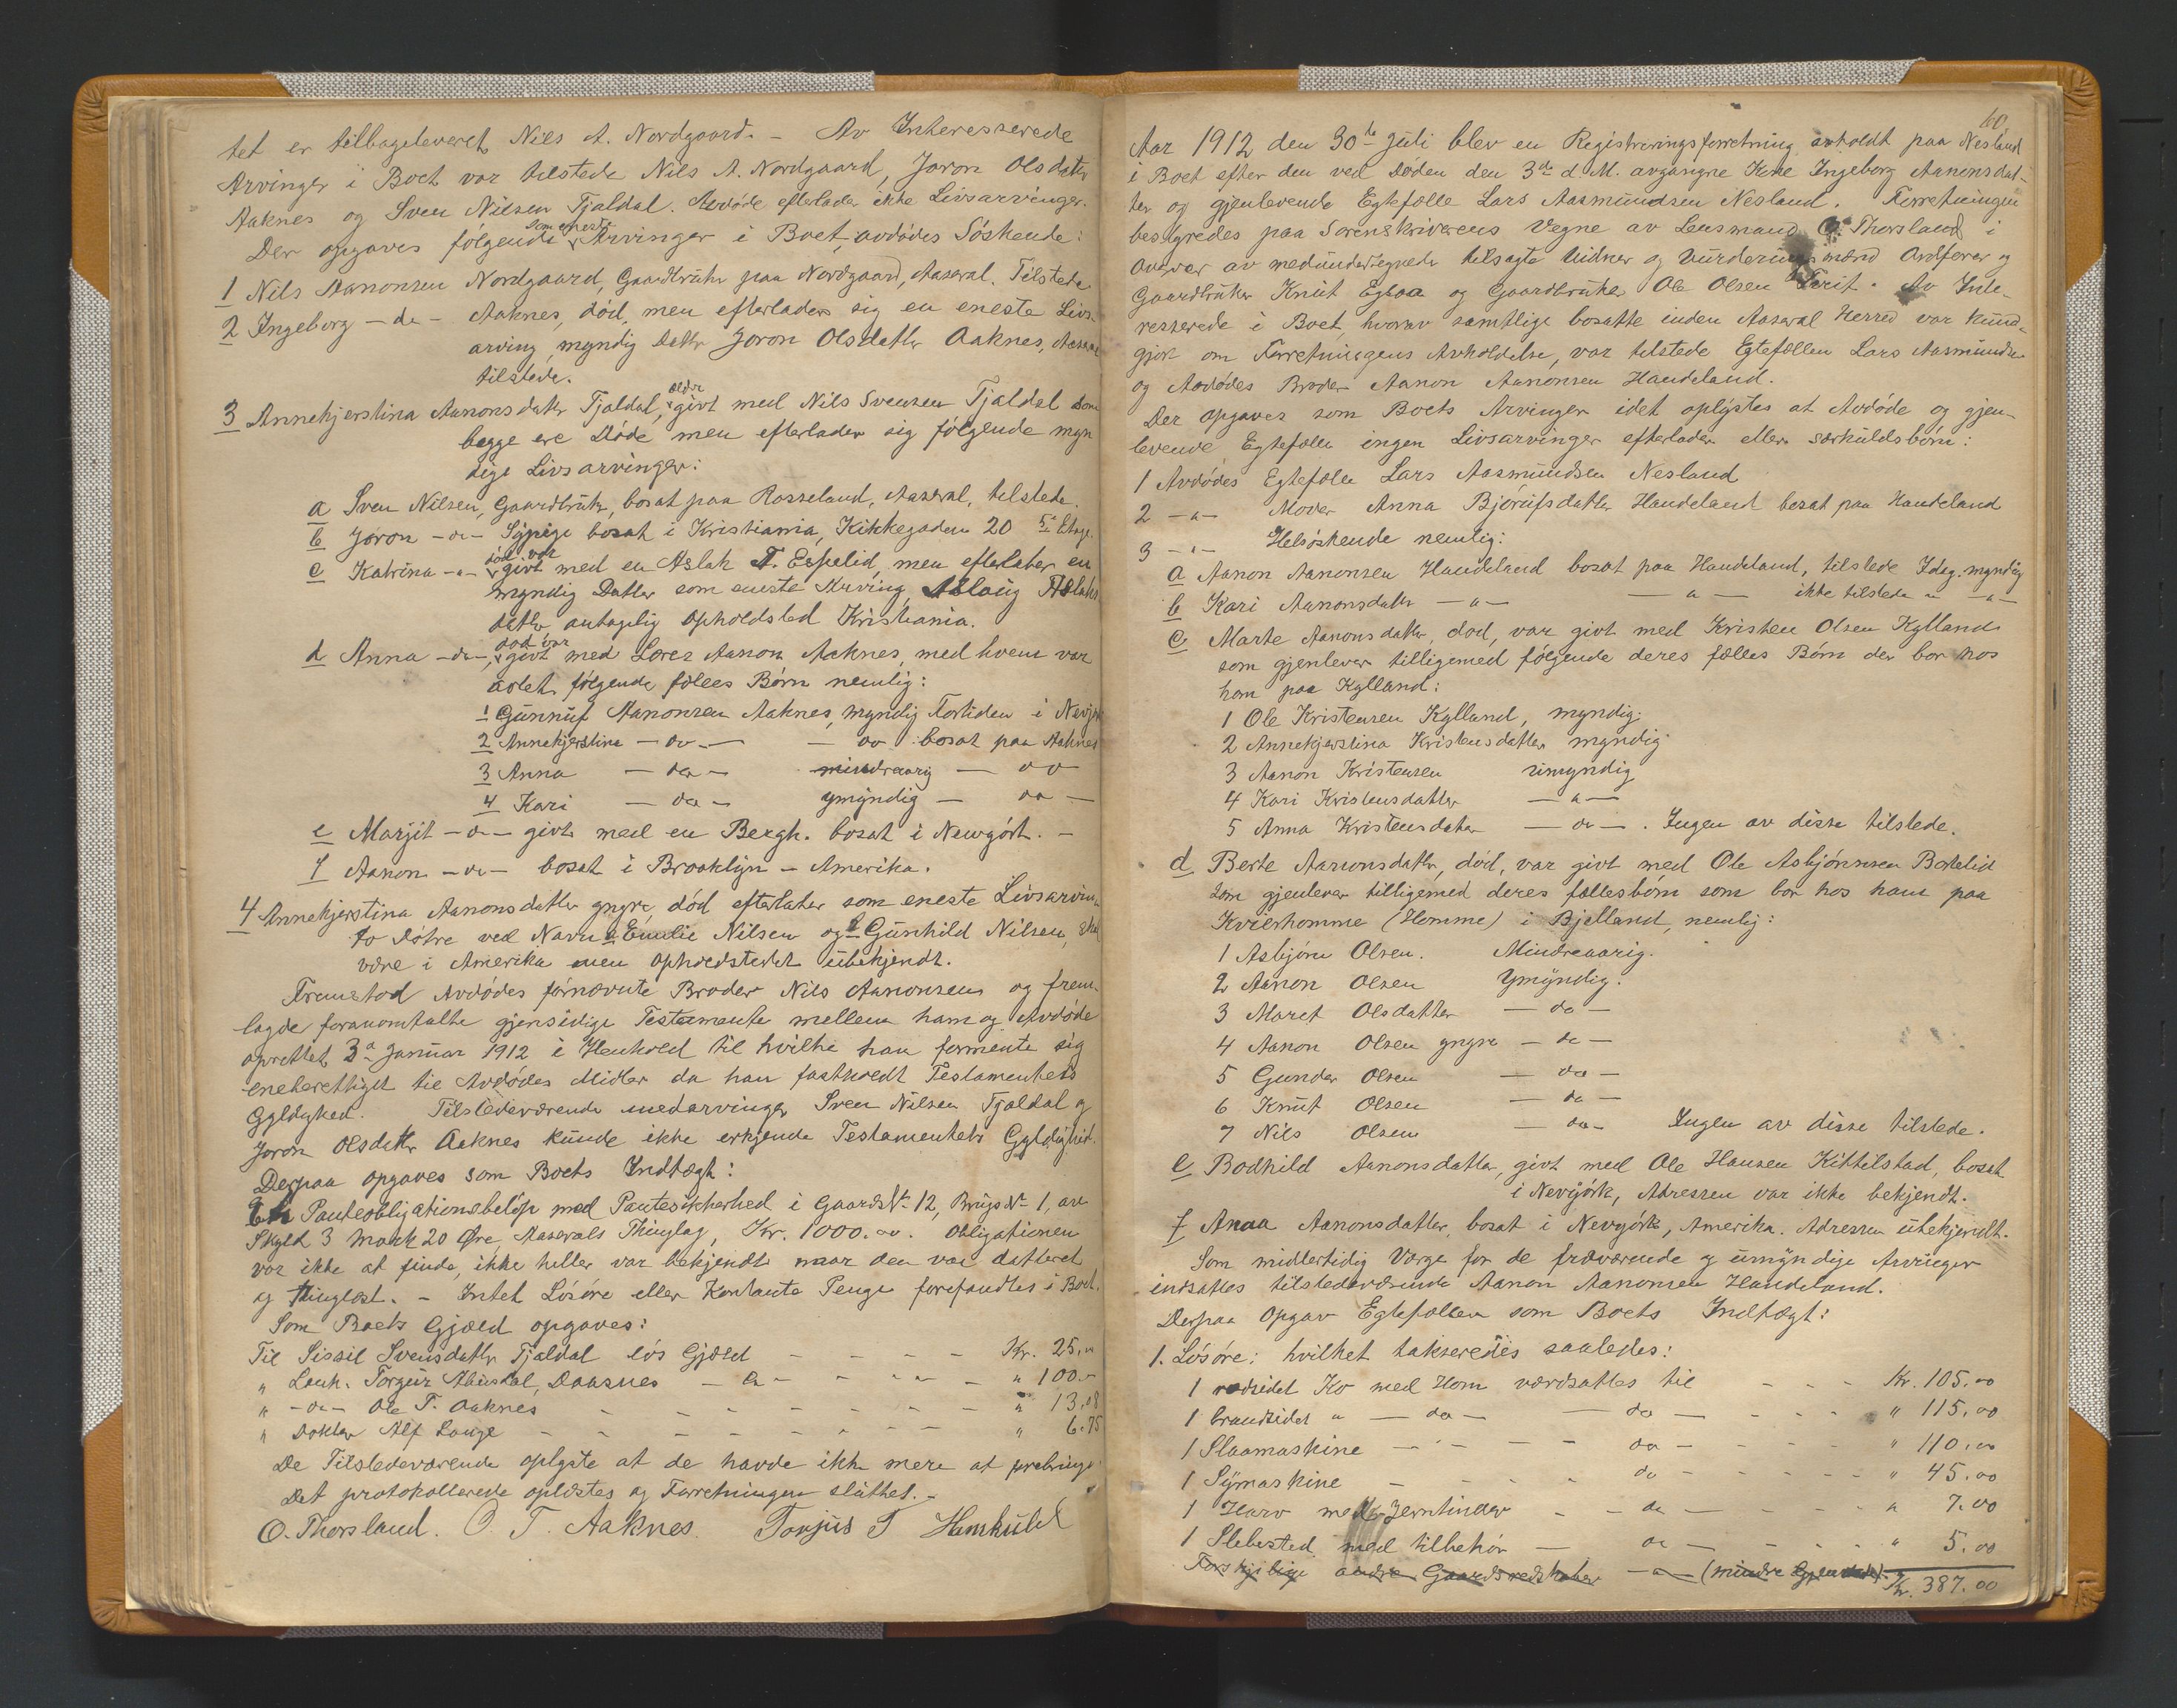 tet er tilbageleveret Nils A. Nordgaard. - Av Interesserede
Arvinger i Boet var tilstede Nils A. Nordgaard, Joron Olsdatter
Aaknes og Sven Nilsen Tjaldal. Avdøde efterlader ikke Livsarvinger.
Der opgaves følgende som eneste Arvinger i Boet, avdødes Søskende:
1 Nils Aanonsen Nordgaard, Gaardbruker paa Nordgaard, Aaseral. Tilstede
2 Ingeborg - do - Aaknes, død, men efterlader sig en eneste Livs-
arving, myndig Datter Joron Olsdatter Aaknes, Aaseral
tilstede.
3 Annekjerstina Aanonsdatter Tjaldal, ældre givt med Nils Svensen Tjaldal som
begge ere Døde men efterlader sig følgende myn
dige Livsarvinger:
a Sven Nilsen, Gaardbruker, bosat paa Rosseland, Aaseral, tilstede.
b Joron - do - Sypige bosat i Kristiania, Kirkegaden 20 5te Etage.
c Katrina - " - død var givt med en Aslak T. Espelid, men efterlater en
myndig Datter som eneste Arving, Aslaug Aslaks
datter antagelig Opholdsted Kristiania.
d Anna - do -, død var givt med Lærer Aanon Aaknes, med hvem var
avlet følgende fælles Børn nemlig:
1 Gunnuf Aanonsen Aaknes, myndig Fortiden i Nevjork
2 Annekjerstina - do - - do bosat paa Aaknes
3 Anna - do - mindreaarig - do
4 Kari - do - Ymyndig - do -
e Marjit - do - givt med en Bergh. bosat i Newyórk. -
f Aanon - do - bosat i Brooklyn - Amerika.
4 Annekjerstina Aanonsdatter yngre, død efterlater som eneste Livsarvin-
to Døtre ved Navn a Emilie Nilsen og b Gunhild Nilsen, skal
være i Amerika men Opholdstedet ubekjendt.
Fremstod Avdødes fornævnte Broder Nils Aanonsen og frem-
lagde foranomtalte gjensidige Testamente mellem ham og Avdøde
oprettet 3a Januar 1912 i Henhold til hvilke han formente sig
eneberettiget til Avdødes Midler da han fastholdt Testamentets
Gyldighed. Tilstedeværende medarvinger Sven Nilsen Tjaldal og
Joron Olsdatter Aaknes kunde ikke erkjende Testamentets Gyldighed.
Derpaa opgaves som Boets Indtægt:
Et Panteobligationsbeløp med Pantesikkerhed i Gaards No 12, Brugs No 1, av
Skyld 3 Mark 20 Øre, Aaserals Thinglag, Kr. 1000.00. Obligationen
var ikke at finde, ikke heller var bekjendt naar den var datteret
og thinglæst. - Intet Løsøre eller Kontante Penge forefandtes i Boet.
Som Boets Gjæld opgaves:
Til Sissil Svensdatter Tjaldal løs Gjæld - - - - Kr. 25.00
" Landh. Torgur Aaknes - do - - - - " 100.-
" - do - Ole T. Aaknes - - - - - - " 13.08
" Doktor Alf Lange - - - - - - " 6.75
De Tilstedeværende oplyste at de havde ikke mere at frebringe
Det protokollerede oplæstes og Forretningen sluttet. -
O. Thorsland. O. T. Aaknes. Tonjus T Homkuld
60.
Aar 1912 den 30te Juli blev en Registreringsforretning avholdt paa Nesland
i Boet efter den ved Døden den 3die d. M. avgangne Kone Ingeborg Aanonsdat-
ter og gjenlevende Egtefælle Lars Aasmundsen Nesland. Forretningen
bestyredes paa Sorenskriverens Vegne av Lensmand O. Thorsland i
Overvær av medundertegnede tilsagte Vidner og Vurderingsmænd Ordfører og
Gaardbruker Knut Egloa og Gaardbruker Ole Olsen Tveit. Av Inte-
resserede i Boet, hvorav samtlige bosatte inden Aaseral Herred var kund-
gjort om Forretningens Avholdelse, var tilstede Egtefællen Lars Aasmundsen
og Avdødes Broder Aanon Aanonsen Haudeland.
Der opgaves som Boets Arvinger idet oplystes at Avdøde og gjen-
levende Egtefælle ingen Livsarvinger efterlader eller særkuldsbørn:
1 Avdødes Egtefælle Lars Aasmundsen Nesland
2 - " - Moder Anna Bjorufsdatter Haudeland bosat paa Haudeland
3 - " - Helsøskende nemlig:
a Aanon Aanonsen Haudeland bosat paa Haudeland, tilstede Idag. myndig
b Kari Aanonsdatter - " - - " - ikke tilstede " - " -
c Marte Aanonsdatter, død, var givt med Kristen Olsen Kylland
som gjenlever tilligemed følgende deres fælles Børn der bor hos
ham paa Kylland:
1 Ole Kristensen Kylland, myndig.
2 Annekjerstina Kristensdatter myndig
3 Aanon Kristensen umyndig
4 Kari Kristensdatter - " -
5 Anna Kristensdatter - do - . Ingen av disse tilstede.
d Berte Aanonsdatter, død, var givt med Ole Asbjørnsen Bertelid
som gjenlever tilligemed deres fællesbørn som bor hos ham paa
Kvierhomme (Homme) i Bjelland, nemlig:
1 Asbjørn Olsen. Mindreaarig.
2 Aanon Olsen Ymyndig.
3 Maret Olsdatter - do -
4 Aanon Olsen yngre - do -
5 Gunder Olsen - do -
6 Knut Olsen - do -
7 Nils Olsen - do - Ingen av disse tilstede.
e Bodhild Aanonsdatter, givt med Ole Hansen Kittilstad, bosat
i Nevyórk, Adressen var ikke bekjendt.
f Anna Aanonsdatter, bosat i Nevyórk, Amerika. Adressen ubekjendt.
Som midlertidig Værge for de fraværende og umyndige Arvinger
indsattes tilstedeværende Aanon Aanonsen Haudeland.
Derpaa Opgav Egtefællen som Boets Indtægt:
1. Løsøre: hvilket takseredes saaledes:
1 rødsidet Ko med Horn værdsattes til - - - Kr. 105.00
1 brandsidet " - do - - do - - - - " 115.00
1 Slaamaskine - - - - do - - - - " 110.00
1 Symaskine - - - - do - - - - " 45.00
1 Harv med Jerntinder - - do - - - - " 7.00
1 Slebested med tilbehør - do - - - - " 5.00
Forskjellige andre Gaardsredskaber - " - (mindre Gjenstande) Kr. 387.00